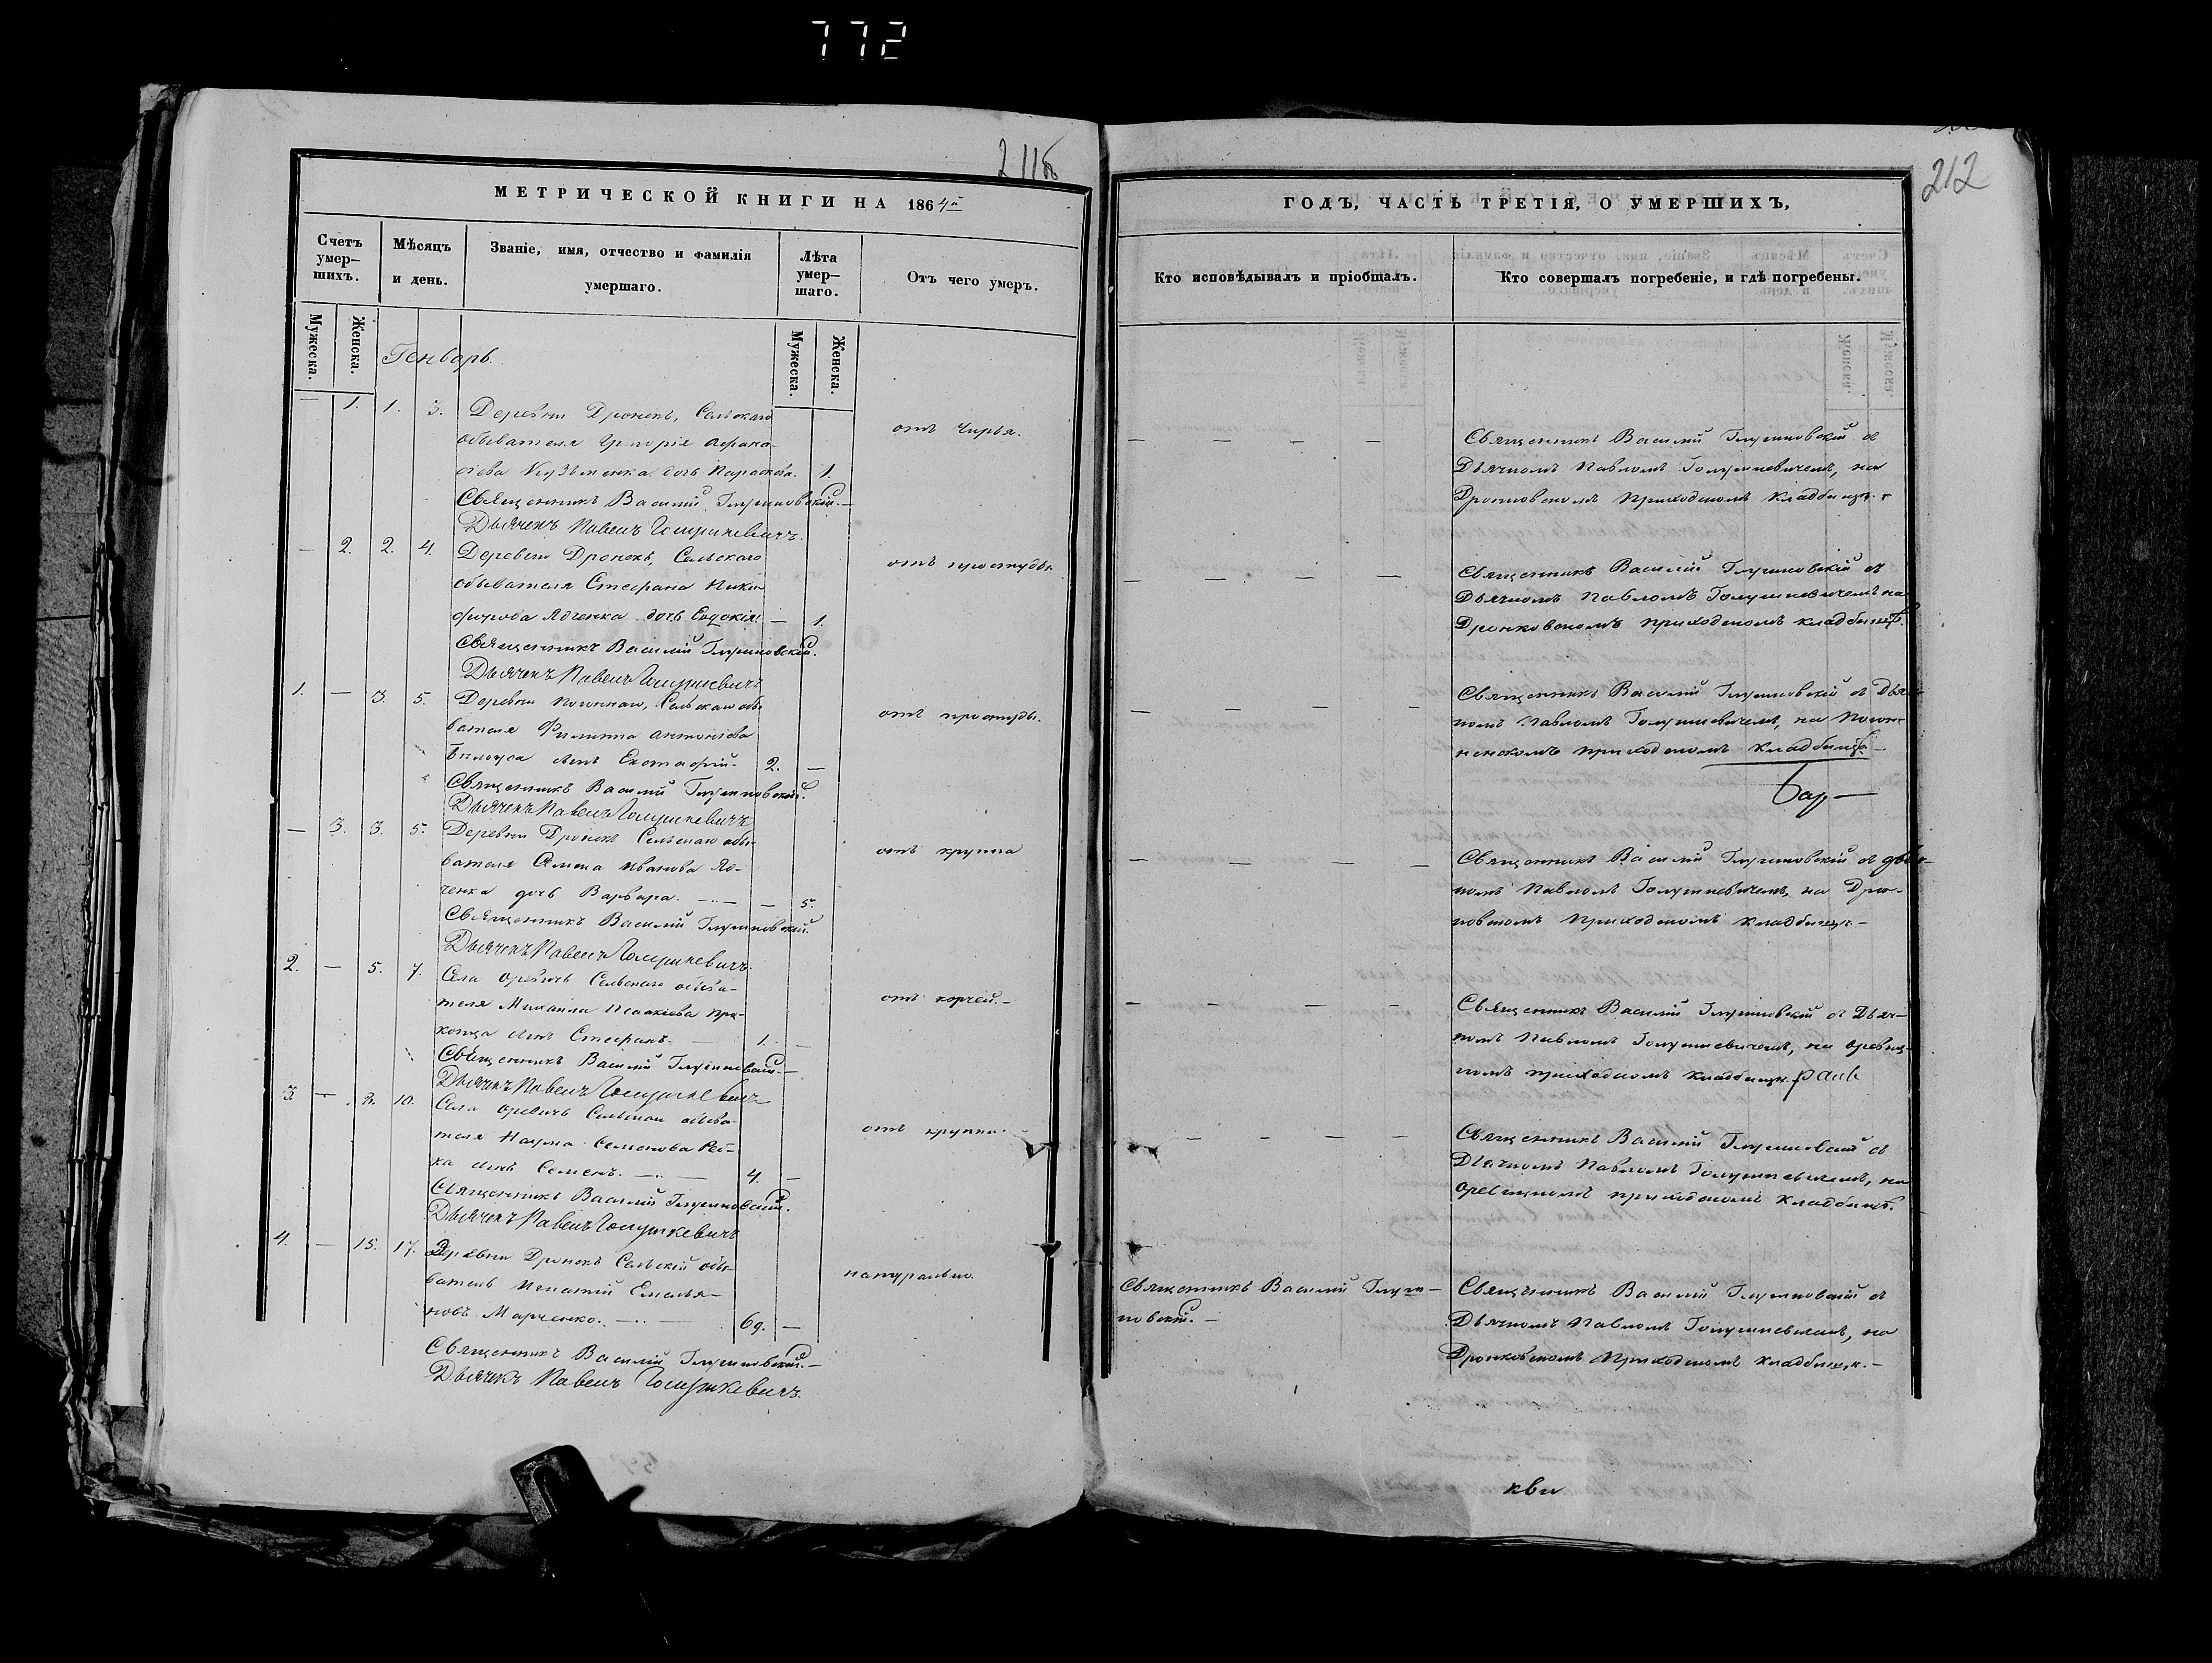 772
211б
МЕТРИЧЕСКОЙ КНИГИ НА 1864й
Счетъ умер-шихъ.
Мѣсяцъ и день.
Званіе, имя, отчество и фамилія умершаго.
Лѣта умер-шаго.
Отъ чего умеръ.
Мужеска.
Женска.
Мужеска.
Женска.
Генварь.
— 1. 1. 3. Деревни Дронекъ, Сельскаго
обывателя Григорія Афана-
отъ чирья.
сіева Кузьменка дочь Параскева. 1
Священникъ Василій Глушковскій.—
Дьячекъ Павелъ Голушкевичъ.
— 2. 2. 4. Деревни Дронекъ, Сельскаго
обывателя Стефана Ники-
отъ простуды.
форова дочь Евдокія — 1.
Священникъ Василій Глушковскій.
Дьячекъ Павелъ Голушкевичъ
1. — 3. 5. Деревни Сельскаго обы-
вателя Филиппа Антоніева
отъ простуды.
сынъ Евстафій. 2. —
Священникъ Василій Глушковскій.
Дьячекъ Павелъ Голушкевичъ
— 3. 3. 5. Деревни Дронекъ Сельскаго обы-
вателя Семена Иванова
отъ круппа
ченка дочь Варвара. — — 5.
Священникъ Василій Глушковскій.
Дьячекъ Павелъ Голушкевичъ.
2. — 5. 7. Села Оревичъ Сельскаго обыва-
теля Михаила Исаакіева
отъ корчей.—
сынъ Стефанъ. — 1. —
Священникъ Василій Глушковскій.—
Дьячекъ Павелъ Голушкевичъ
3. — 8. 10. Села Оревичъ Сельскаго обыва-
теля Наума Семенова
отъ круппа.
ка сынъ Семенъ. — 4. —
Священникъ Василій Глушковскій.
Дьячекъ Павелъ Голушкевичъ
4. — 15. 17. Деревни Дронекъ Сельскій обы-
ватель Игнатій Емелья-
натурально.
новъ Марченко. — 69. —
Священникъ Василій Глушковскій.—
Дьячекъ Павелъ Голушкевичъ.
212
ГОДЪ, ЧАСТЬ ТРЕТІЯ, О УМЕРШИХЪ,
Кто исповѣдывалъ и пріобщалъ.
Кто совершалъ погребеніе, и гдѣ погребены.
— — — — Священникъ Василій Глушковскій съ
Дьячкомъ Павломъ Голушкевичемъ, на
Дронковскомъ приходскомъ кладбищѣ.
— — — — Священникъ Василій Глушковскій съ
Дьячкомъ Павломъ Голушкевичемъ на
Дронковскомъ приходскомъ кладбищѣ.
— — — — Священникъ Василій Глушковскій съ Дьяч-
комъ Павломъ Голушкевичемъ, на
приходскомъ кладбищѣ.—
— — — — Священникъ Василій Глушковскій съ Дьяч-
комъ Павломъ Голушкевичемъ, на Дрон-
ковскомъ приходскомъ кладбищѣ.—
— — — — Священникъ Василій Глушковскій съ Дьяч-
комъ Павломъ Голушкевичемъ, на Оревиц-
комъ приходскомъ кладбищѣ.
— — — — Священникъ Василій Глушковскій съ
Дьячкомъ Павломъ Голушкевичемъ, на
Оревицкомъ приходскомъ кладбищѣ.
Священникъ Василій Глуш-
ковскій.—
Священникъ Василій Глушковскій съ
Дьячкомъ Павломъ Голушкевичемъ, на
Дронковскомъ приходскомъ кладбищѣ.—